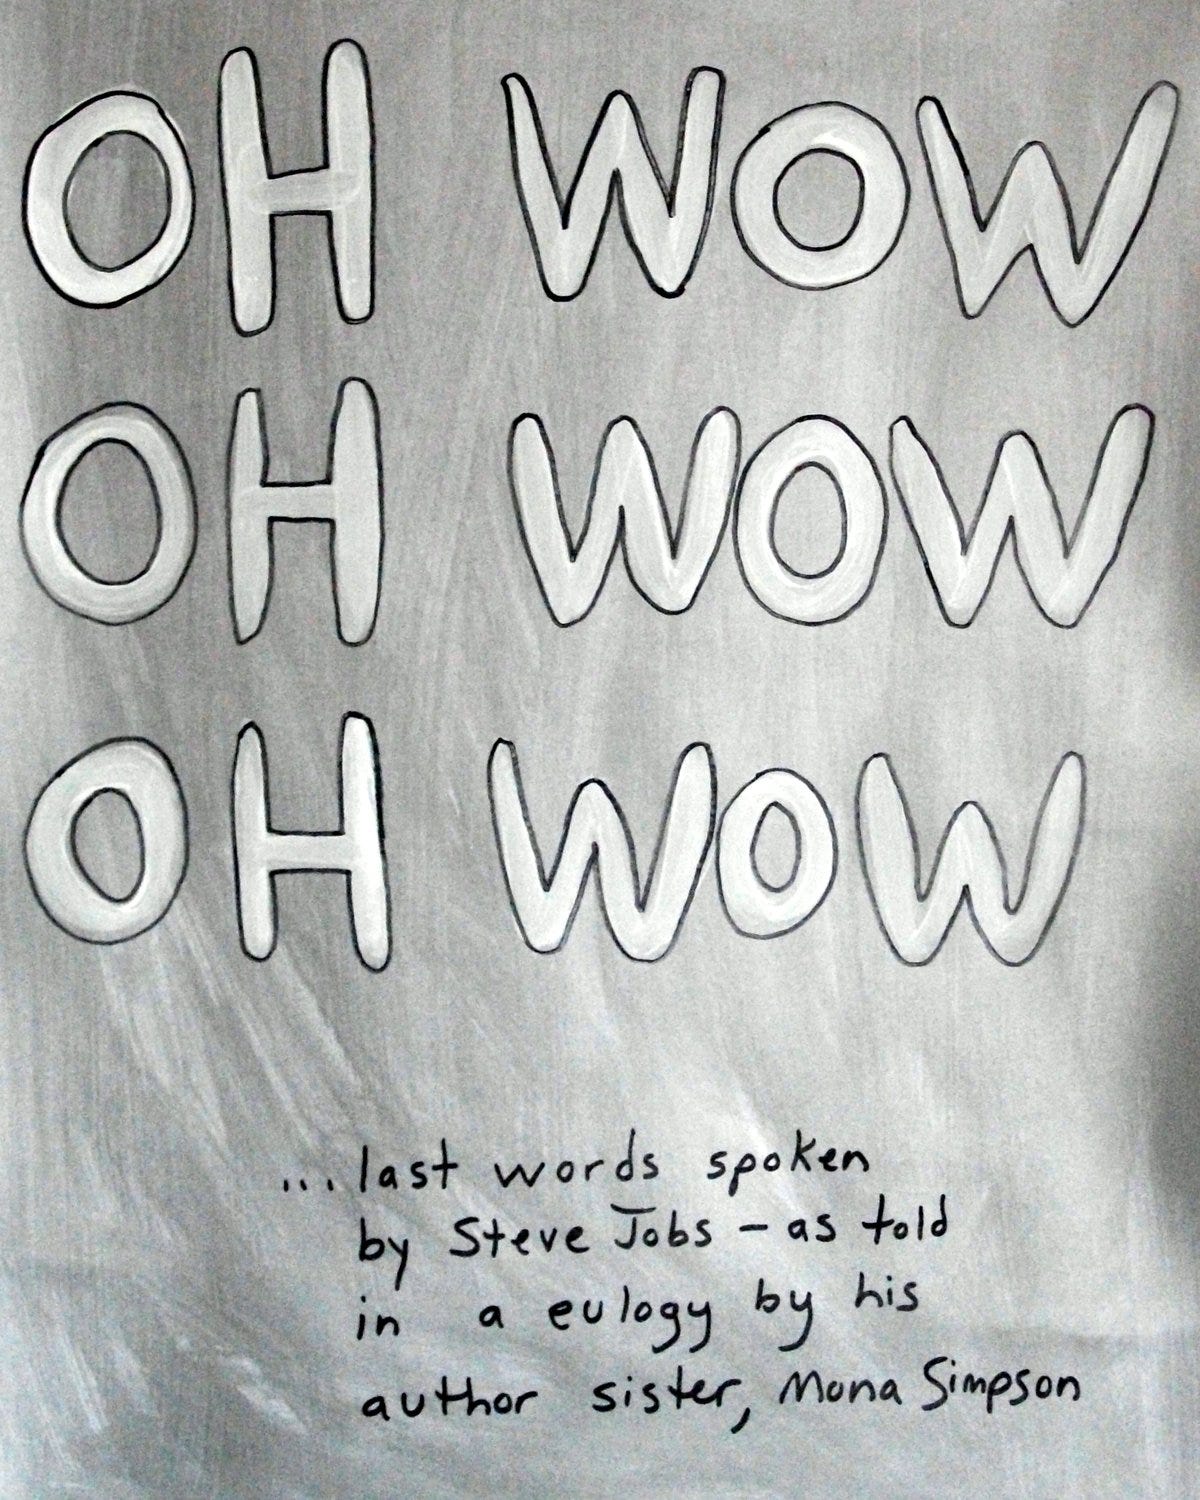 OH WOW
OH WOW
OH WOW
...last words spoken
by Steve Jobs – as told
in a eulogy by his
author sister, Mona Simpson